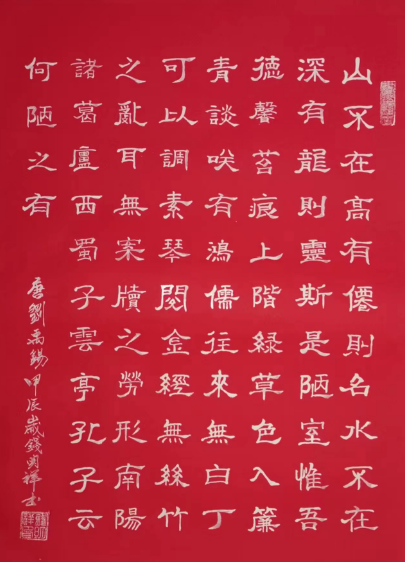 山不在高有僊則名水不在
深有龍則靈斯是陋室惟吾
德馨苔痕上階緑草色入簾
青談咲有鴻儒往來無白丁
可以調素琴閲金經無絲竹
之亂耳無案牘之勞形南陽
諸葛廬西蜀子雲亭孔子云
何陋之有
唐劉禹錫甲辰歲錢明祥书